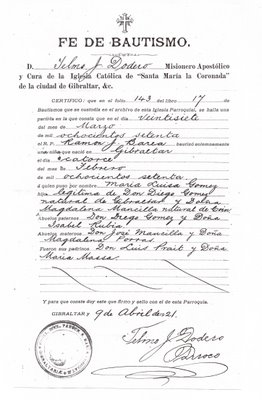 FE DE BAUTISMO.
D. Telmo J. Dodero Misionero Apostólico
y Cura de la Iglesia Católica de "Santa María la Coronada"
de la ciudad de Gibraltar, &c.
CERTIFICO: que en el folio 143 del libro 17 de
Bautismos que se custodia en el archivo de esta Iglesia Parroquial, se halla una
partida en la que consta que en el día Veintisiete
del mes de Marzo
de mil ochocientos setenta
el R. P. Ramon J. Barea bautizó solemnemente
que nació en Gibraltar
el día catorce
del mes de Febrero
de mil ochocientos setenta
á quien puso por nombre María Luisa Gomez
legítima de Don Diego Gomez
natural de Gibraltar y Doña
Magdalena Mancilla natural de
Abuelos paternos Don Diego Gomez y Doña
Isabel Rubia
Abuelos maternos Don José Mancilla y Doña
Magdalena Porras
Fueron sus padrinos Don Luis y Doña
Maria Massa
Y para que conste doy este que firmo y sello con el de esta Parroquia.
GIBRALTAR y 9 de Abril de 21.
Telmo J. Dodero
Párroco